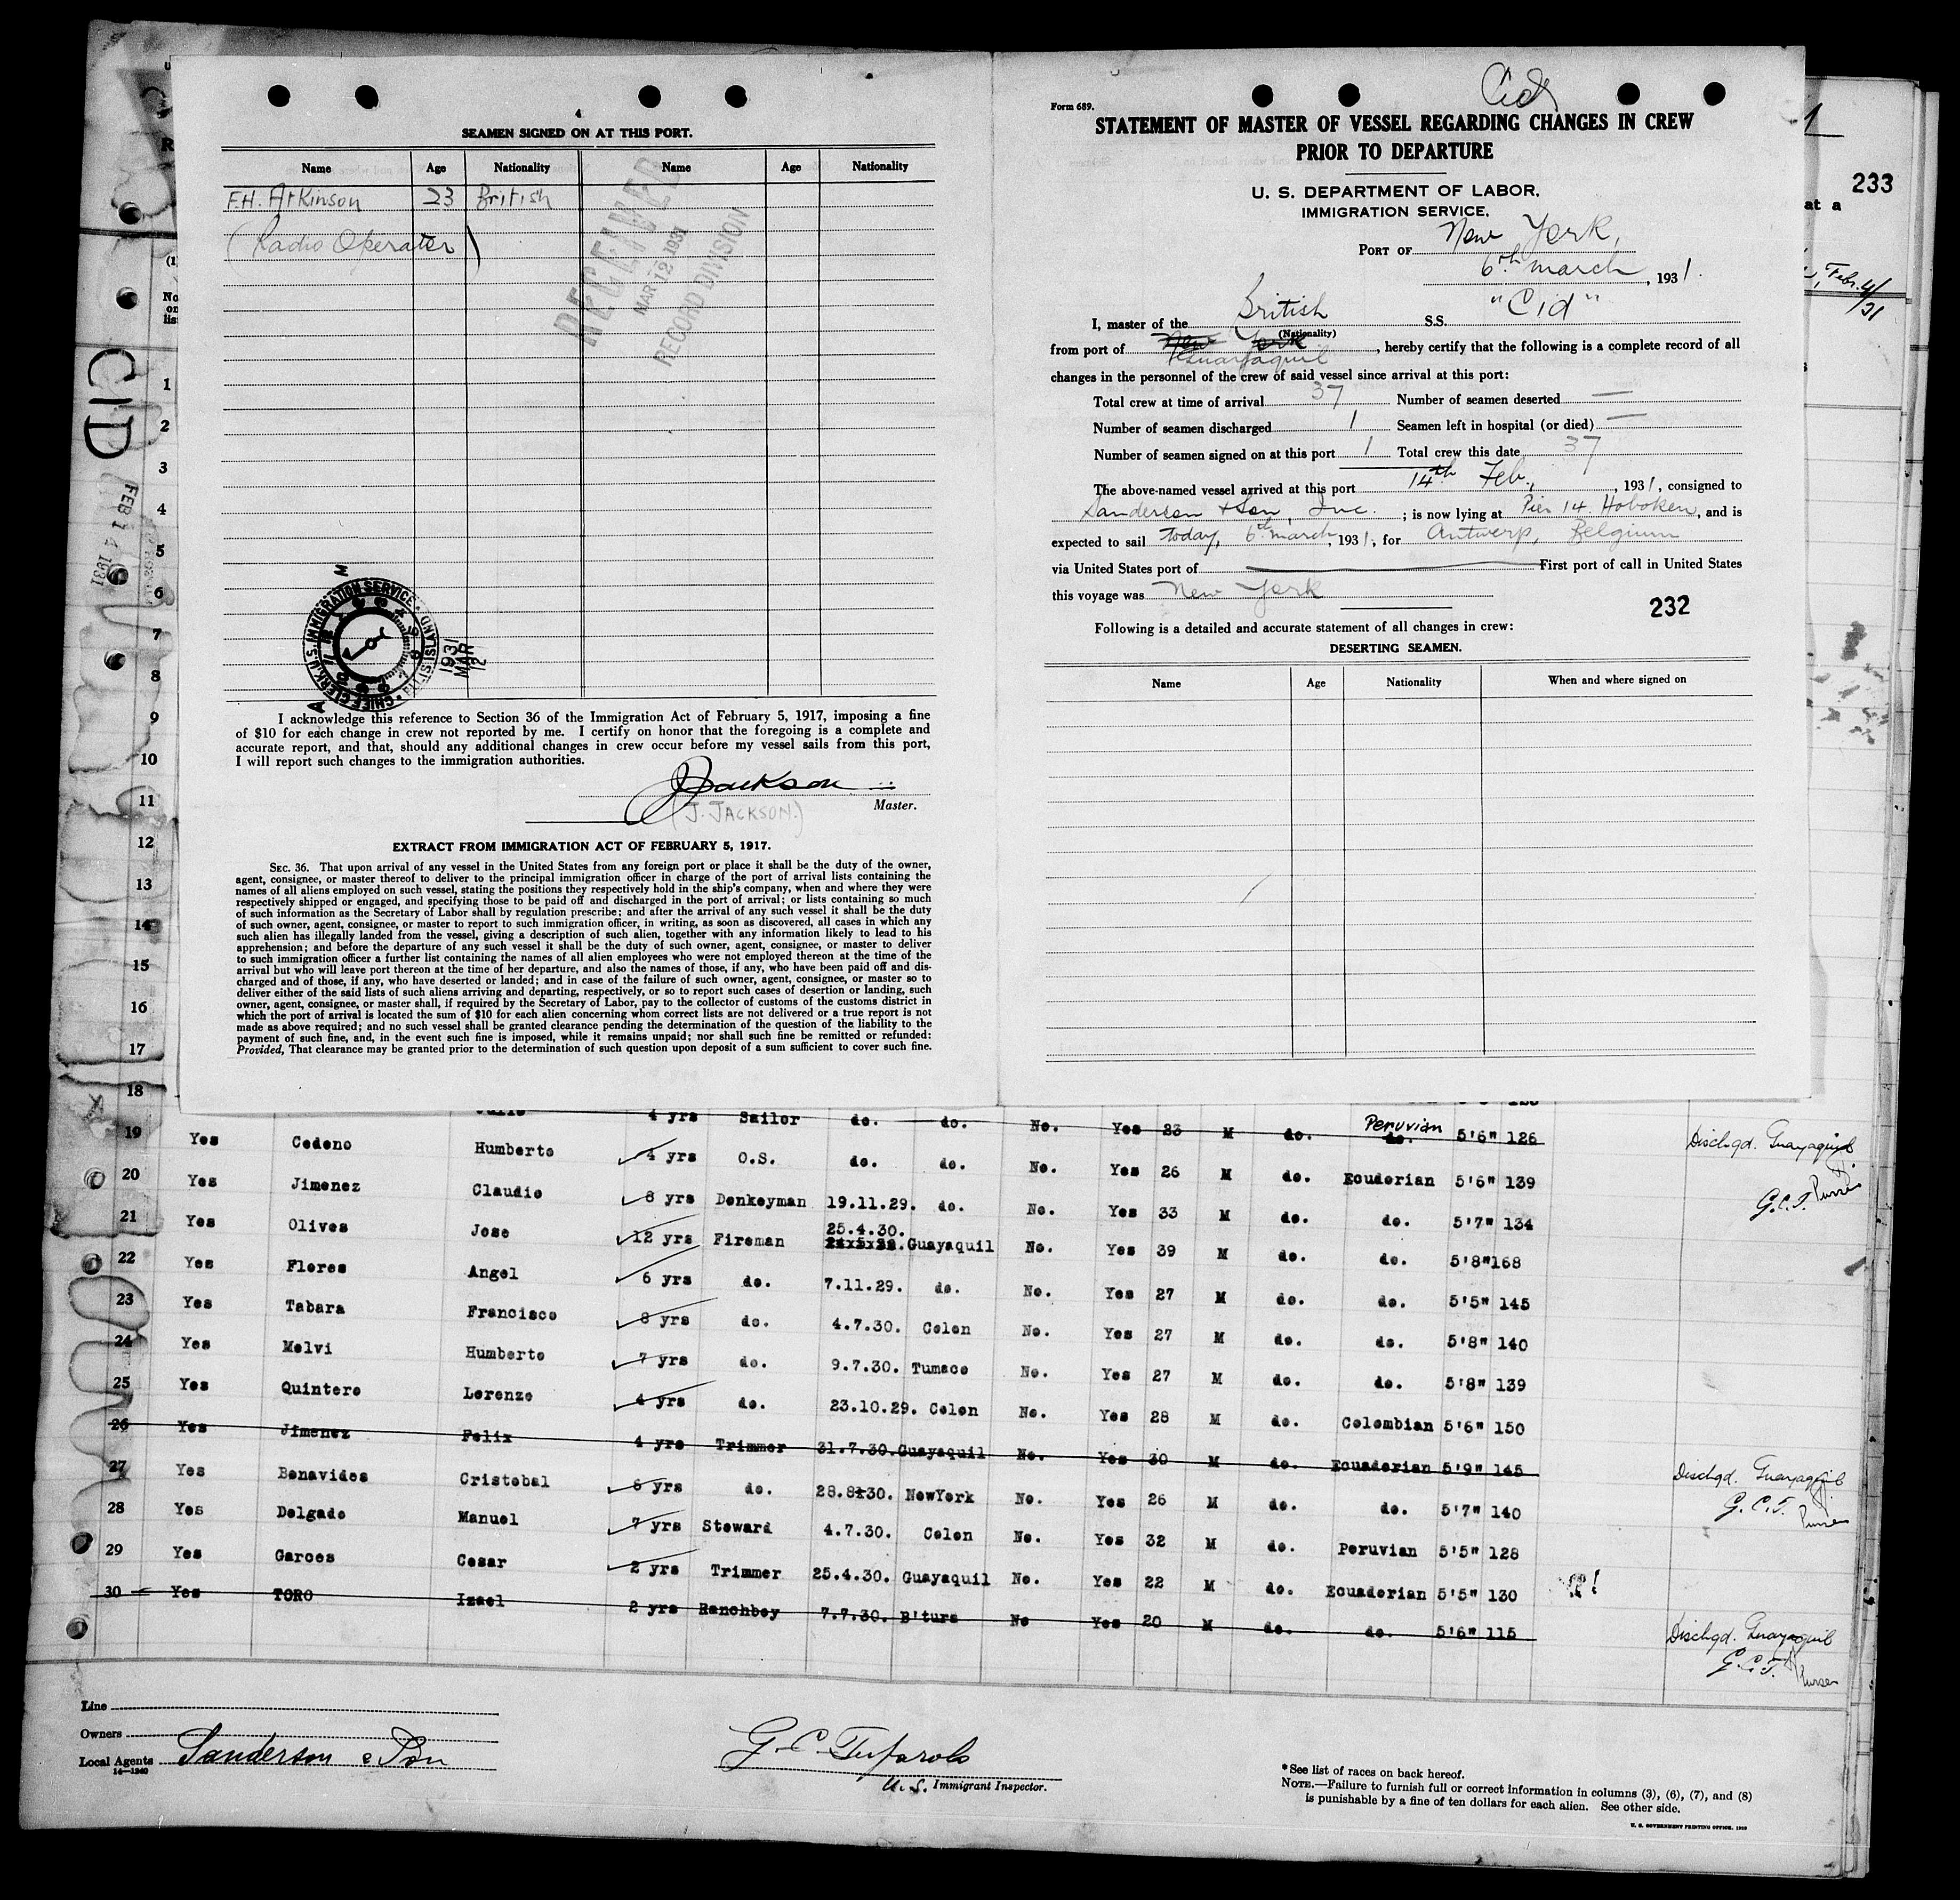 4
SEAMEN SIGNED ON AT THIS PORT.
Name Age Nationality Name Age Nationality
F.H. Atkinson 23 British
(Radio Operator)
RECEIVED
MAR 12 1931
RECORD DIVISION
CHIEF CLERK, U.S. IMMIGRATION SERVICE
1931
MAR
12
I acknowledge this reference to Section 36 of the Immigration Act of February 5, 1917, imposing a fine
of $10 for each change in crew not reported by me. I certify on honor that the foregoing is a complete and
accurate report, and that, should any additional changes in crew occur before my vessel sails from this port,
I will report such changes to the immigration authorities.
JJackson
Master.
(J. JACKSON.)
EXTRACT FROM IMMIGRATION ACT OF FEBRUARY 5, 1917.
SEC. 36. That upon arrival of any vessel in the United States from any foreign port or place it shall be the duty of the owner,
agent, consignee, or master thereof to deliver to the principal immigration officer in charge of the port of arrival lists containing the
names of all aliens employed on such vessel, stating the positions they respectively hold in the ship's company, when and where they were
respectively shipped or engaged, and specifying those to be paid off and discharged in the port of arrival; or lists containing so much
of such information as the Secretary of Labor shall by regulation prescribe; and after the arrival of any such vessel it shall be the duty
of such owner, agent, consignee, or master to report to such immigration officer, in writing, as soon as discovered, all cases in which any
such alien has illegally landed from the vessel, giving a description of such alien, together with any information likely to lead to his
apprehension; and before the departure of any such vessel it shall be the duty of such owner, agent, consignee, or master to deliver
to such immigration officer a further list containing the names of all alien employees who were not employed thereon at the time of the
arrival but who will leave port thereon at the time of her departure, and also the names of those, if any, who have been paid off and dis-
charged and of those, if any, who have deserted or landed; and in case of the failure of such owner, agent, consignee, or master so to
deliver either of the said lists of such aliens arriving and departing, respectively, or so to report such cases of desertion or landing, such
owner, agent, consignee, or master shall, if required by the Secretary of Labor, pay to the collector of customs of the customs district in
which the port of arrival is located the sum of $10 for each alien concerning whom correct lists are not delivered or a true report is not
made as above required; and no such vessel shall be granted clearance pending the determination of the question of the liability to the
payment of such fine, and, in the event such fine is imposed, while it remains unpaid; nor shall such fine be remitted or refunded:
Provided, That clearance may be granted prior to the determination of such question upon deposit of a sum sufficient to cover such fine.
Cid
Form 689.
STATEMENT OF MASTER OF VESSEL REGARDING CHANGES IN CREW
PRIOR TO DEPARTURE
U. S. DEPARTMENT OF LABOR,
IMMIGRATION SERVICE,
PORT OF New York,
6th march, 1931.
I, master of the British S.S. "Cid"
(Nationality)
from port of New York Guayaquil, hereby certify that the following is a complete record of all
changes in the personnel of the crew of said vessel since arrival at this port:
Total crew at time of arrival 37 Number of seamen deserted —
Number of seamen discharged 1 Seamen left in hospital (or died) —
Number of seamen signed on at this port 1 Total crew this date 37
The above-named vessel arrived at this port 14th Feb., 1931, consigned to
Sanderson & Son, Inc. ; is now lying at Pier 14. Hoboken, and is
expected to sail today, 6th march, 1931, for Antwerp, Belgium
via United States port of — First port of call in United States
this voyage was New York
232
Following is a detailed and accurate statement of all changes in crew:
DESERTING SEAMEN.
Name Age Nationality When and where signed on
1
233
at a
Feb. 4/31
CID
FEB 14 1931
1
2
3
4
5
6
7
8
9
10
11
12
13
14
15
16
17
18
4 yrs Sailor do. do. No. Yes 23 M do. Peruvian do. 5'6" 126
19 Yes Cedeno Humberto 4 yrs O.S. do. do. No. Yes 26 M do. Ecuadorian 5'6" 139 Dischgd. Guayaquil
20 Yes Jimenez Claudio 8 yrs Donkeyman 19.11.29. do. No. Yes 33 M do. do. 5'7" 134 G.C.T. Purser
21 Yes Olives Jose 12 yrs Fireman 25.4.30. Guayaquil No. Yes 39 M do. do. 5'8" 168
22 Yes Flores Angel 6 yrs do. 7.11.29. do. No. Yes 27 M do. do. 5'5" 145
23 Yes Tabara Francisco 8 yrs do. 4.7.30. Colon No. Yes 27 M do. do. 5'8" 140
24 Yes Melvi Humberto 7 yrs do. 9.7.30. Tumaco No. Yes 27 M do. do. 5'8" 139
25 Yes Quintero Lorenzo 4 yrs do. 23.10.29. Colon No. Yes 28 M do. Colombian 5'6" 150
26 Yes Jimenez Felix 4 yrs Trimmer 31.7.30. Guayaquil No. Yes 30 M do. Ecuadorian 5'9" 145
27 Yes Benavides Cristobal 6 yrs do. 28.8.30. NewYork No. Yes 26 M do. do. 5'7" 140 Dischgd. Guayaquil
G.C.T. Purser
28 Yes Delgado Manuel 7 yrs Steward 4.7.30. Colon No. Yes 32 M do. Peruvian 5'5" 128
29 Yes Garces Cesar 2 yrs Trimmer 25.4.30. Guayaquil No. Yes 22 M do. Ecuadorian 5'5" 130
30 Yes TORO Izael 2 yrs Ranchboy 7.7.30. B'tura No Yes 20 M do. do. 5'6" 115 Dischgd. Guayaquil
G.C.T. Purser
Line
Owners
Local Agents Sanderson & Son
14—1240
U.S. Immigrant Inspector.
*See list of races on back hereof.
NOTE.—Failure to furnish full or correct information in columns (3), (6), (7), and (8)
is punishable by a fine of ten dollars for each alien. See other side.
U. S. GOVERNMENT PRINTING OFFICE: 1929